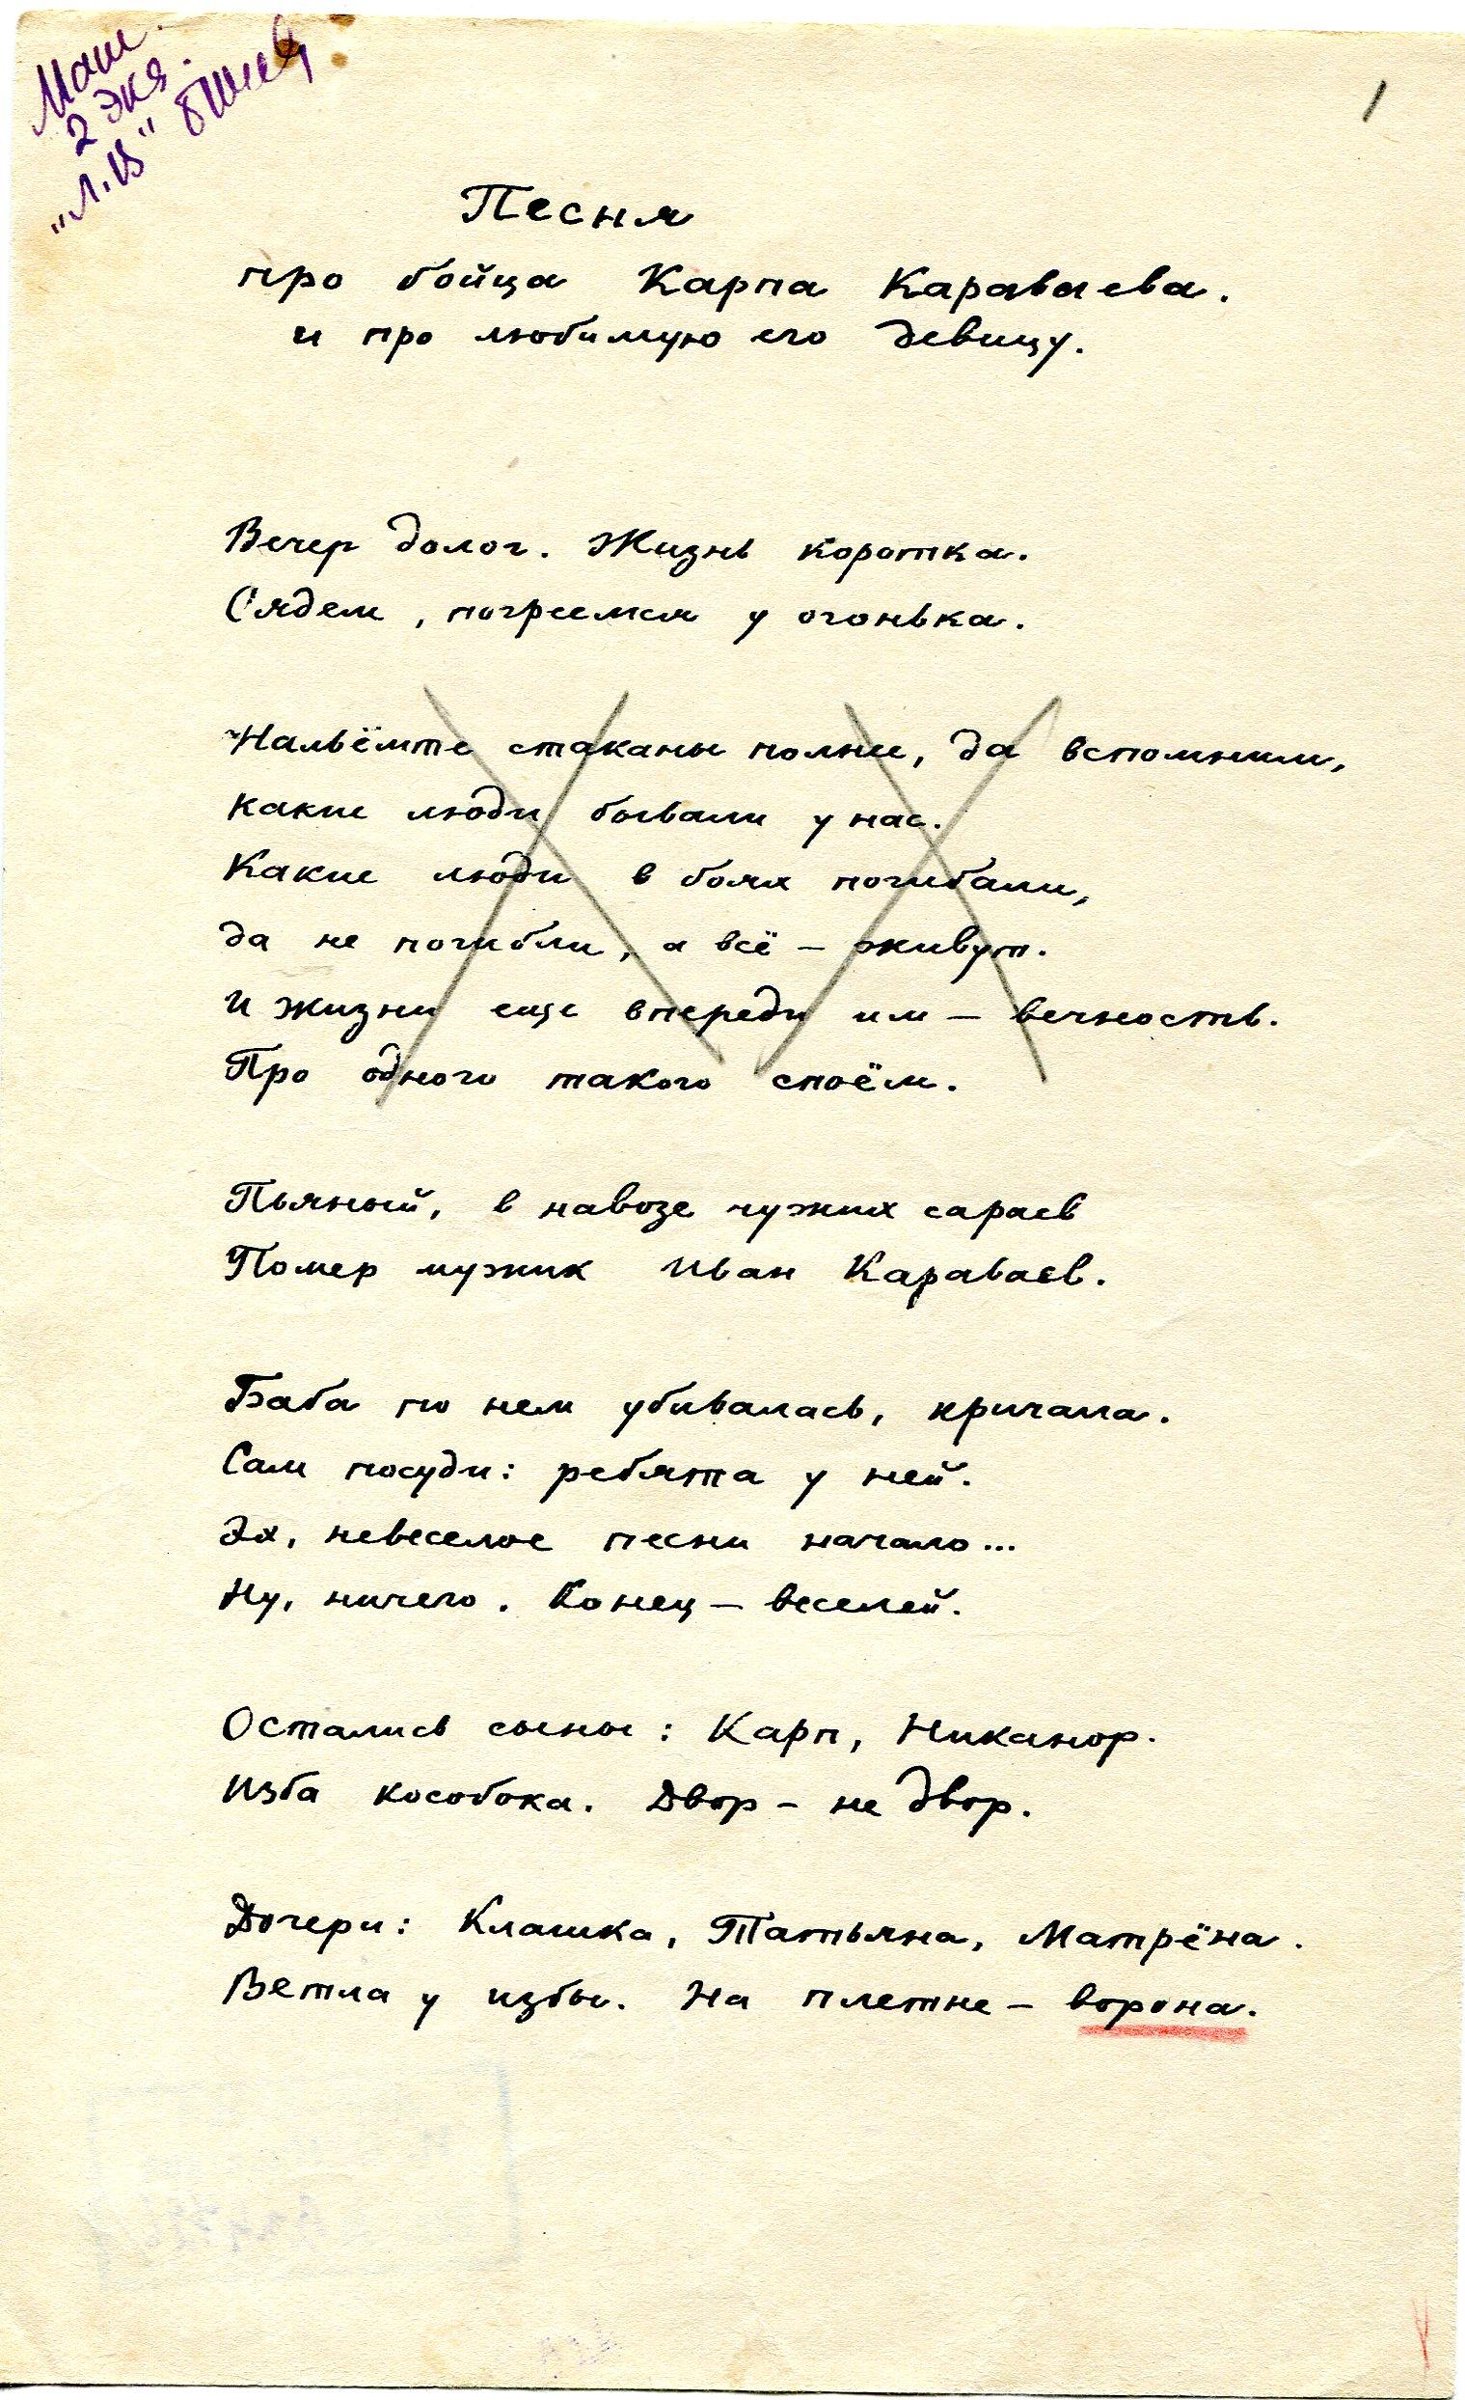 Маш.
2 экз.
"Л.В"
1
Песня
про бойца Карпа Караваева.
и про любимую его девицу.
Вечер долог. Жизнь коротка.
Сядем, погреемся у огонька.
Нальёмте стаканы полней, да вспомним,
какие люди бывали у нас.
Какие люди в боях погибали,
да не погибли, а всё – живут.
И жизни еще впереди им – вечность.
Про одного такого споём.
Пьяный, в навозе чужих сараев
Помер мужик Иван Караваев.
Баба по нем убивалась, кричала.
Сам посуди: ребята у ней.
Эх, невеселое песни начало...
Ну, ничего. Конец – веселей.
Остались сыны: Карп, Никанор.
Изба кособока. Двор – не двор.
Дочери: Клашка, Татьяна, Матрёна.
Ветла у избы. На плетне – ворона.